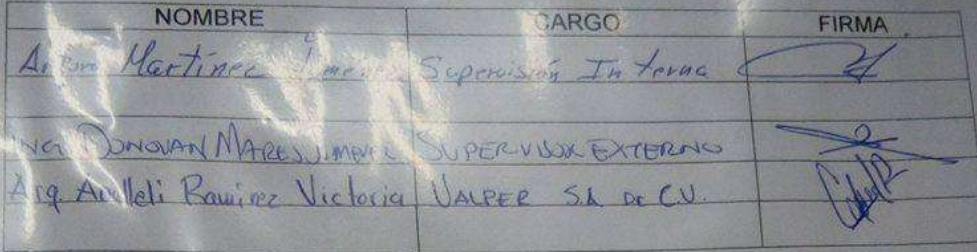 NOMBRE CARGO FIRMA
Martínez Supervisión Interna
ING. DONOVAN MARES JIMENEZ SUPERVISOR EXTERNO
Arq. Ramirez Victoria VALPER S.A. DE C.V.